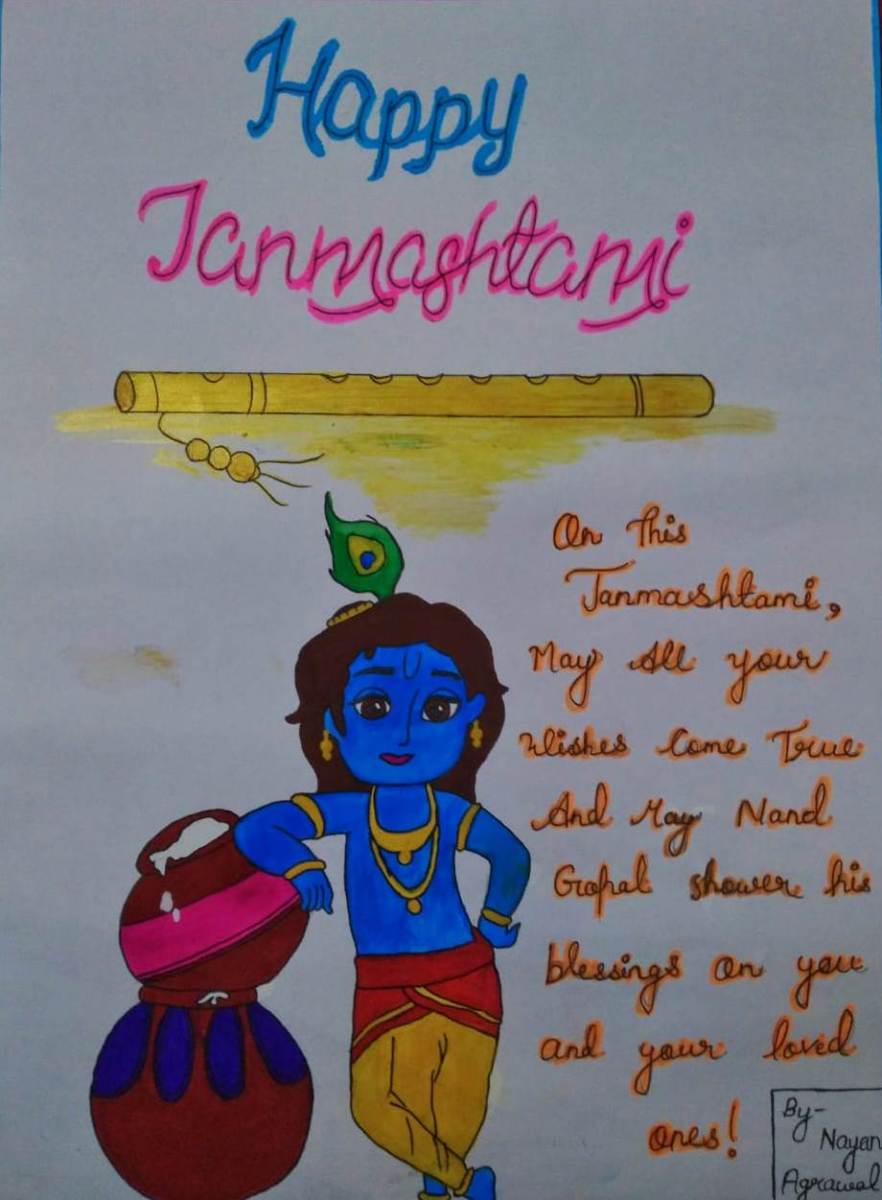 Happy
Janmashtami
On this
Janmashtami,
May All your
Wishes Come True
And May Nand
Gopal shower his
blessings on you
and your loved
ones!
By-
Nayan
Agrawal